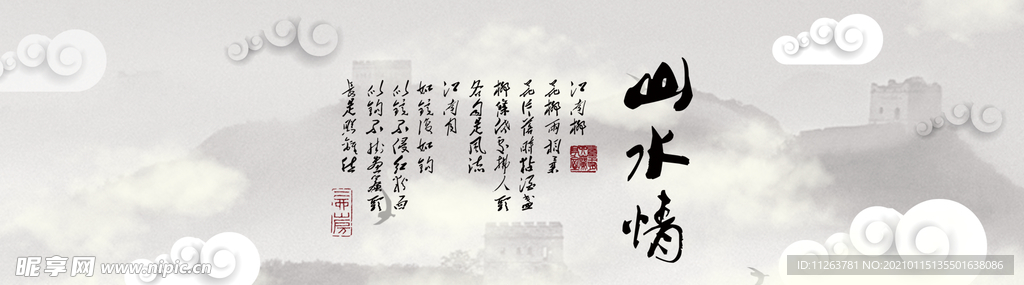 山水情
江南柳
花柳兩相柔
花片落時黏酒盞
柳條低處拂人頭
各自是風流
江南月
如鏡復如鉤
似鏡不侵紅粉面
似鉤不掛畫簾頭
長是照離愁
昵享网 www.nipic.cn
ID:11263781 NO:20210115135501638086